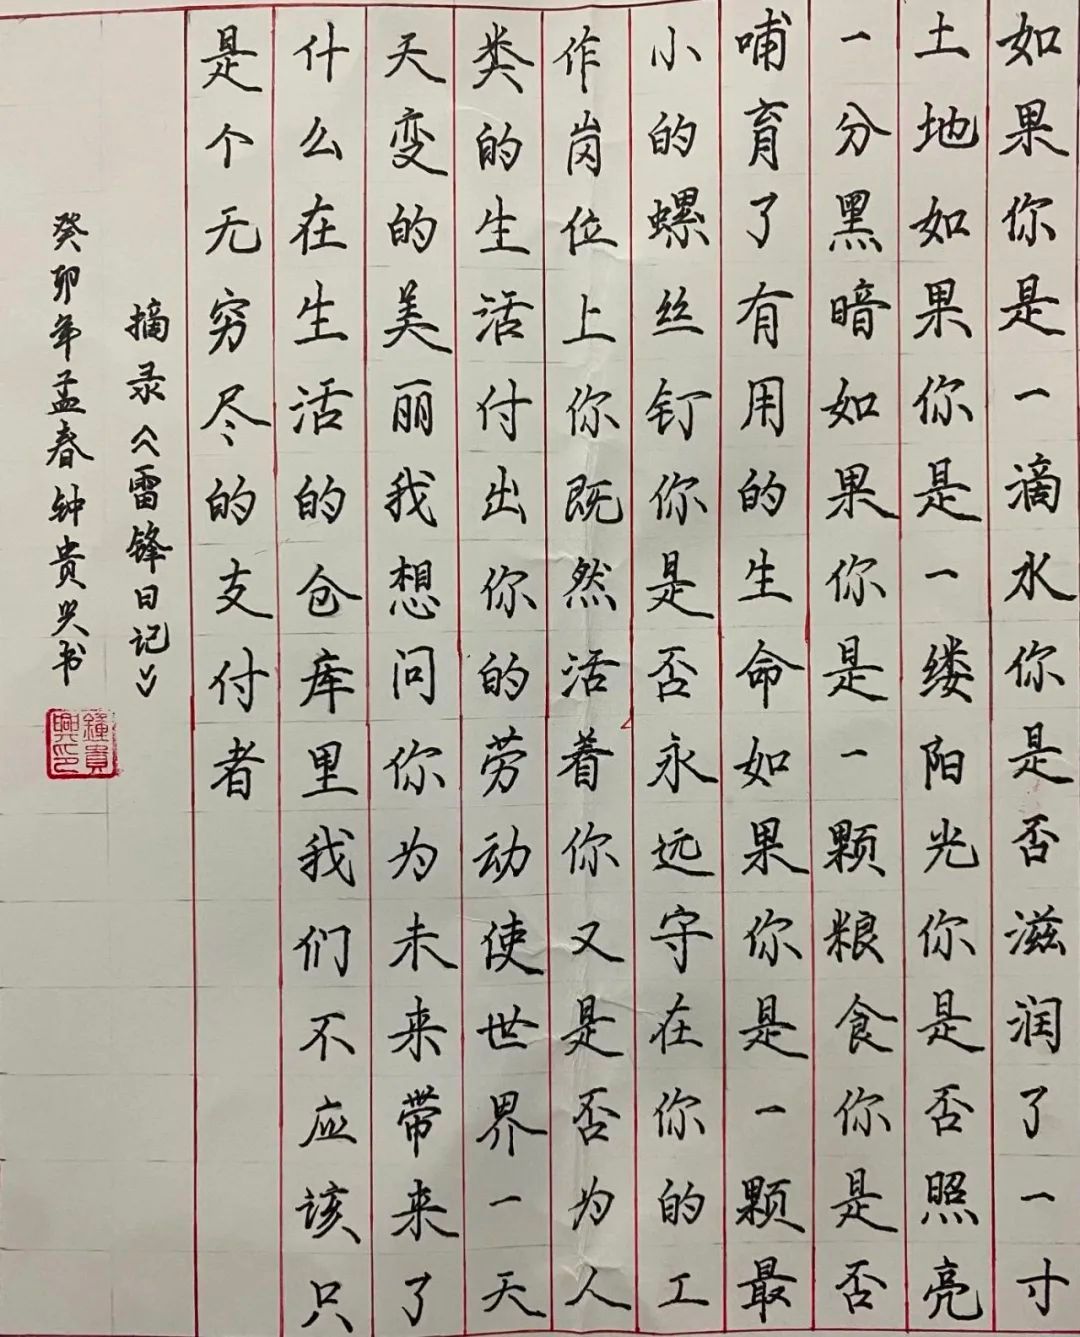 如果你是一滴水你是否滋润了一寸
土地如果你是一缕阳光你是否照亮
一分黑暗如果你是一颗粮食你是否
哺育了有用的生命如果你是一颗最
小的螺丝钉你是否永远守在你的工
作岗位上你既然活着你又是否为人
类的生活付出你的劳动使世界一天
天变的美丽我想问你为未来带来了
什么在生活的仓库里我们不应该只
是个无穷尽的支付者
摘录《雷锋日记》
癸卯年孟春钟贵兴书
鍾貴興印